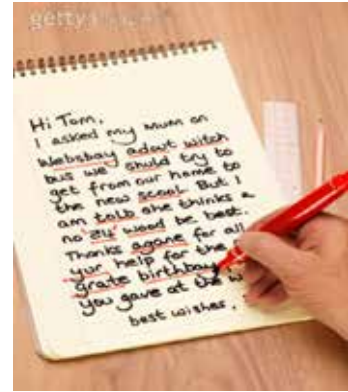 gettyimages
Hi Tom,
I asked my mum on
Websbay adout witch
bus we shuld try to
get from our home to
the new scoal. But I
am tolb she thinks a
no '24' wood be best.
Thanks agane for all
yur help for the
grate birthbay
you gave at the w
best wishes.